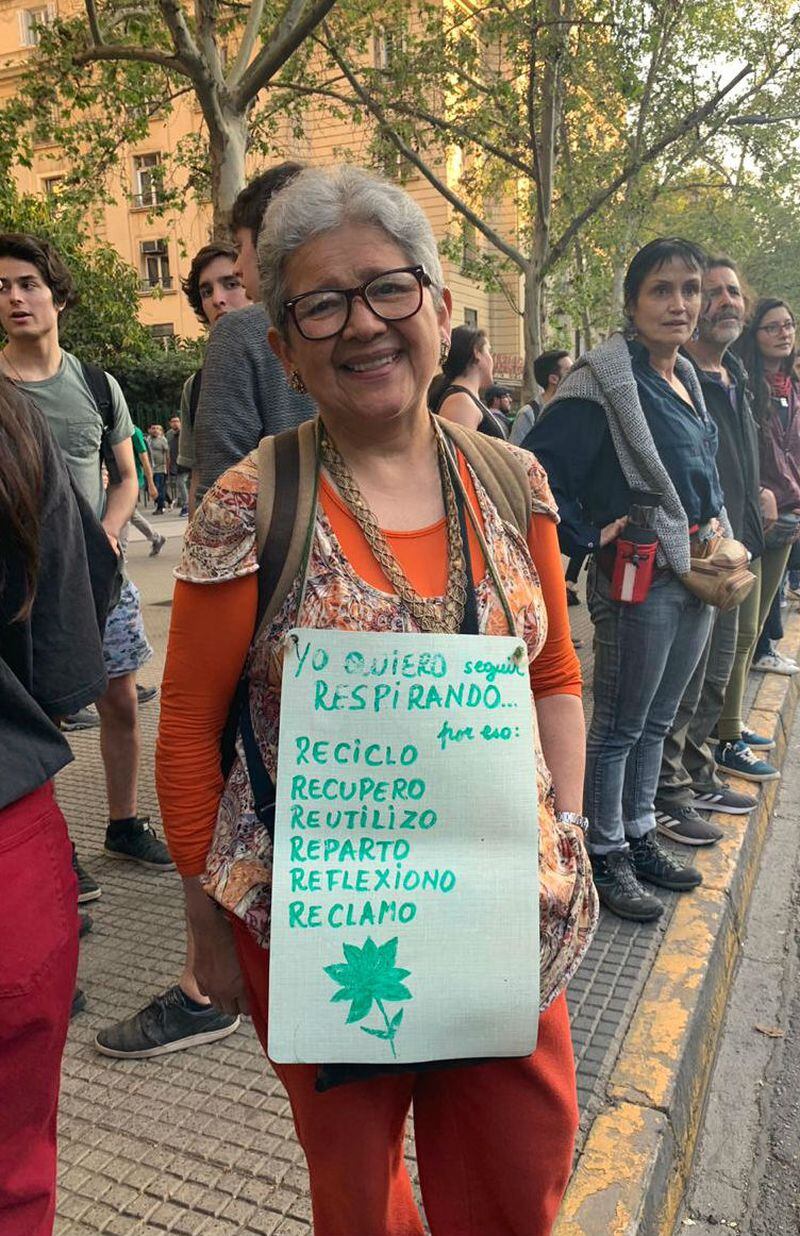 YO QUIERO seguir
RESPIRANDO...
por eso:
RECICLO
RECUPERO
REUTILIZO
REPARTO
REFLEXIONO
RECLAMO